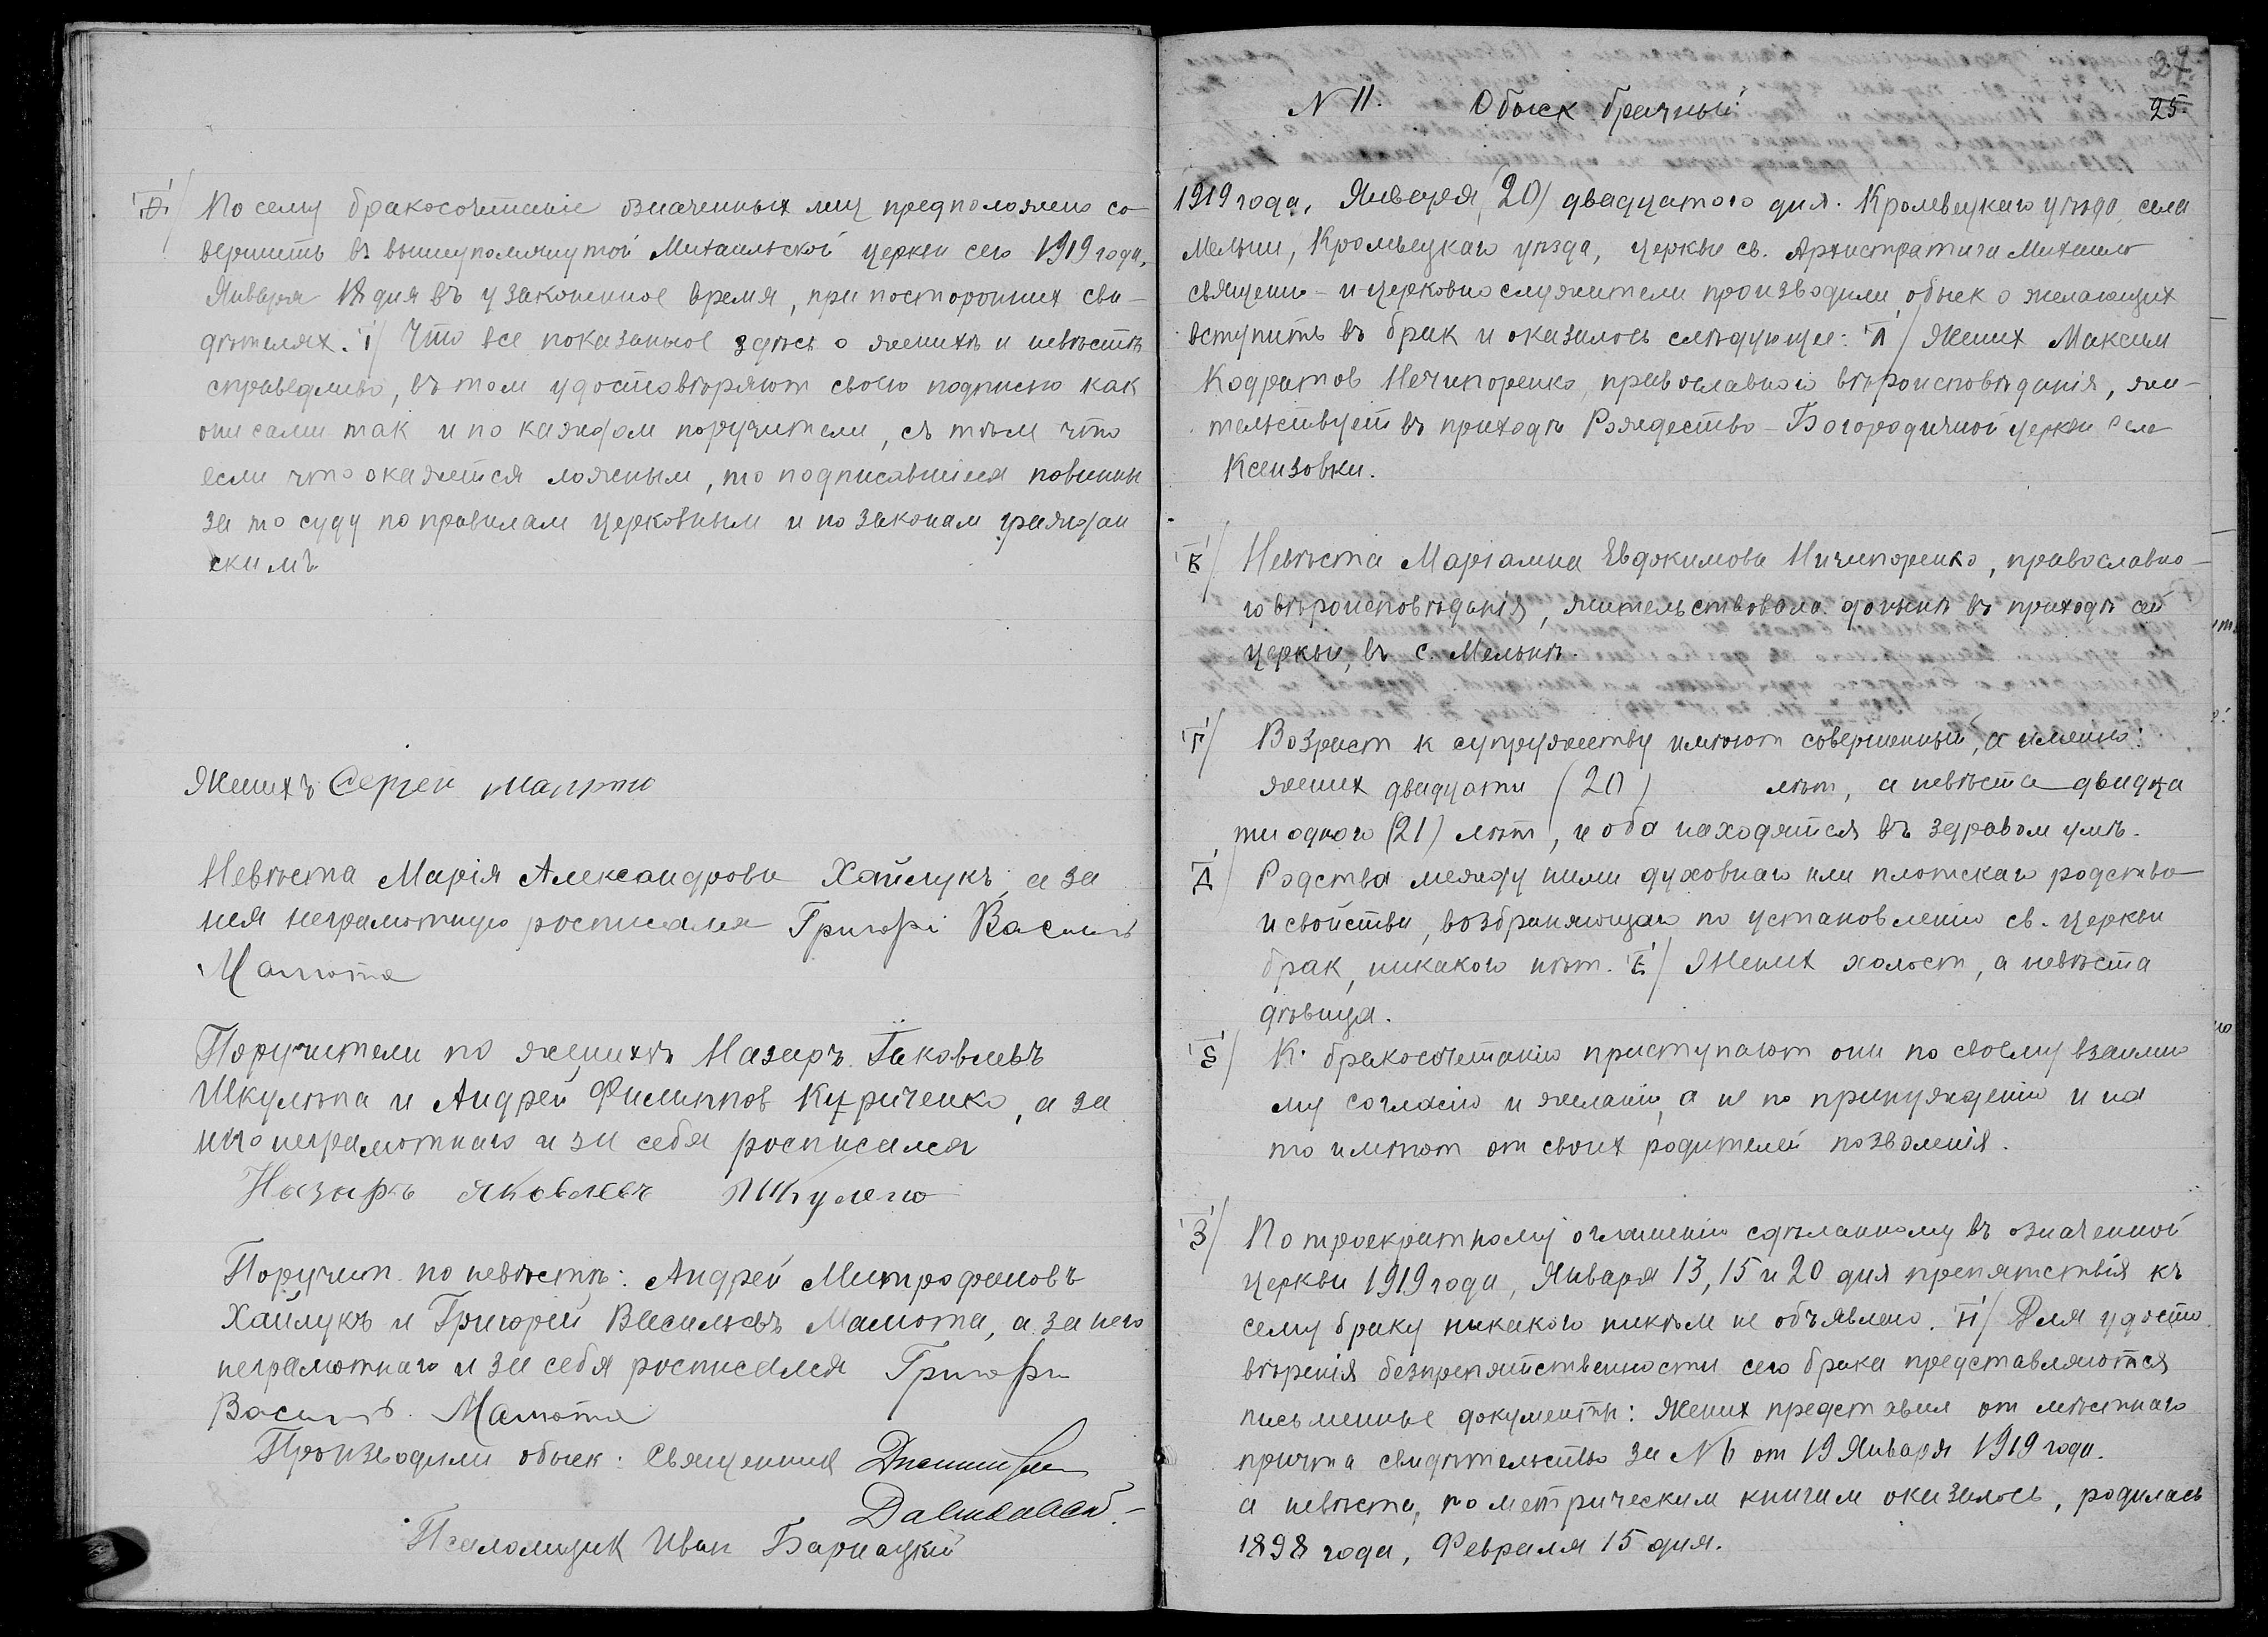 Ѳ/ По сему бракосочетаніе означенных лиц предположено со-
вершить въ вышеупомянутой Михаильской церкви сего 1919 года,
Января 18 дня въ узаконенное время, при посторонних сви-
дѣтелях. І/ Что все показанное здѣсь о женихѣ и невѣстѣ
справедливо, въ том удостовѣряют своею подписью как
они сами так и по каждом поручители, съ тѣм что
если что окажется ложным, то подписавшиеся повинны
за то суду по правилам церковным и по законам граждан
скимъ.
Женихъ Сергей
Невѣста Марія Александрова Хайлукъ, а за
нея неграмотную росписался Григорі Василь
Мамота
Поручители по женихѣ Назаръ Іаковлевъ
Шкулѣпа и Андрей Филиппов Куриченко, а за
него неграмотнаго и за себя росписался
Назаръ Яковлевъ
Поручит. по невѣстѣ: Андрей Митрофановъ
Хайлукъ и Григорей Васильевъ Мамота, а за него
неграмотнаго и за себя росписался Григори
Василь. Мамота
Производили обыск: Священник
Псаломщик Иван Барнацкій
27
25.
N 11. Обыск брачный
1919 года, Января (20) двадцатого дня. Кролевецкаго уѣзда, села
Мельни, Кролевецкаго уѣзда, церкви св. Архистратига Михаила
священно- и церковно служители производили обыск о желающих
вступить въ брак и оказалось слѣдующее: А/ Жених Максим
Кодратов Нечипоренко, православного вѣроисповѣданія, жи-
тельствует въ приходѣ Рождество-Богородичной церкви села
Ксензовки.
В/ Невѣста Маріамна Евдокимова Ничипоренко, православно-
го вѣроисповѣданія, жительствовала донынѣ въ приходѣ сей
церкви, въ с. Мельнѣ.
Г/ Возраст к супружеству имѣют совершенный, а именно:
жених двадцати (20) лѣт, а невѣста двадца
ти одного (21) лѣт, и оба находятся въ здравом умѣ.
Д/ Родства между ними духовнаго или плотскаго родства
и свойства, возбраняющаго по установленію св. церкви
брак, никакого нѣт. Е/ Жених холост, а невѣста
дѣвица.
Ѕ/ К бракосочетанію приступают они по своему взаимно
му согласію и желанію, а не по принужденію и на
то имѣют от своих родителей позволенія.
З/ По троекратному оглашенію сдѣланному въ означенной
церкви 1919 года, Января 13, 15 и 20 дня препятствія къ
сему браку никакого никѣм не объявлено. И/ Для удосто
вѣренія безпрепятственности сего брака представляются
письменные документы: Жених представил от мѣстнаго
причта свидѣтельство за N 6 от 19 Января 1919 года.
а невѣста, по метрическим книгам оказалось, родилась
1898 года, Февраля 15 дня.